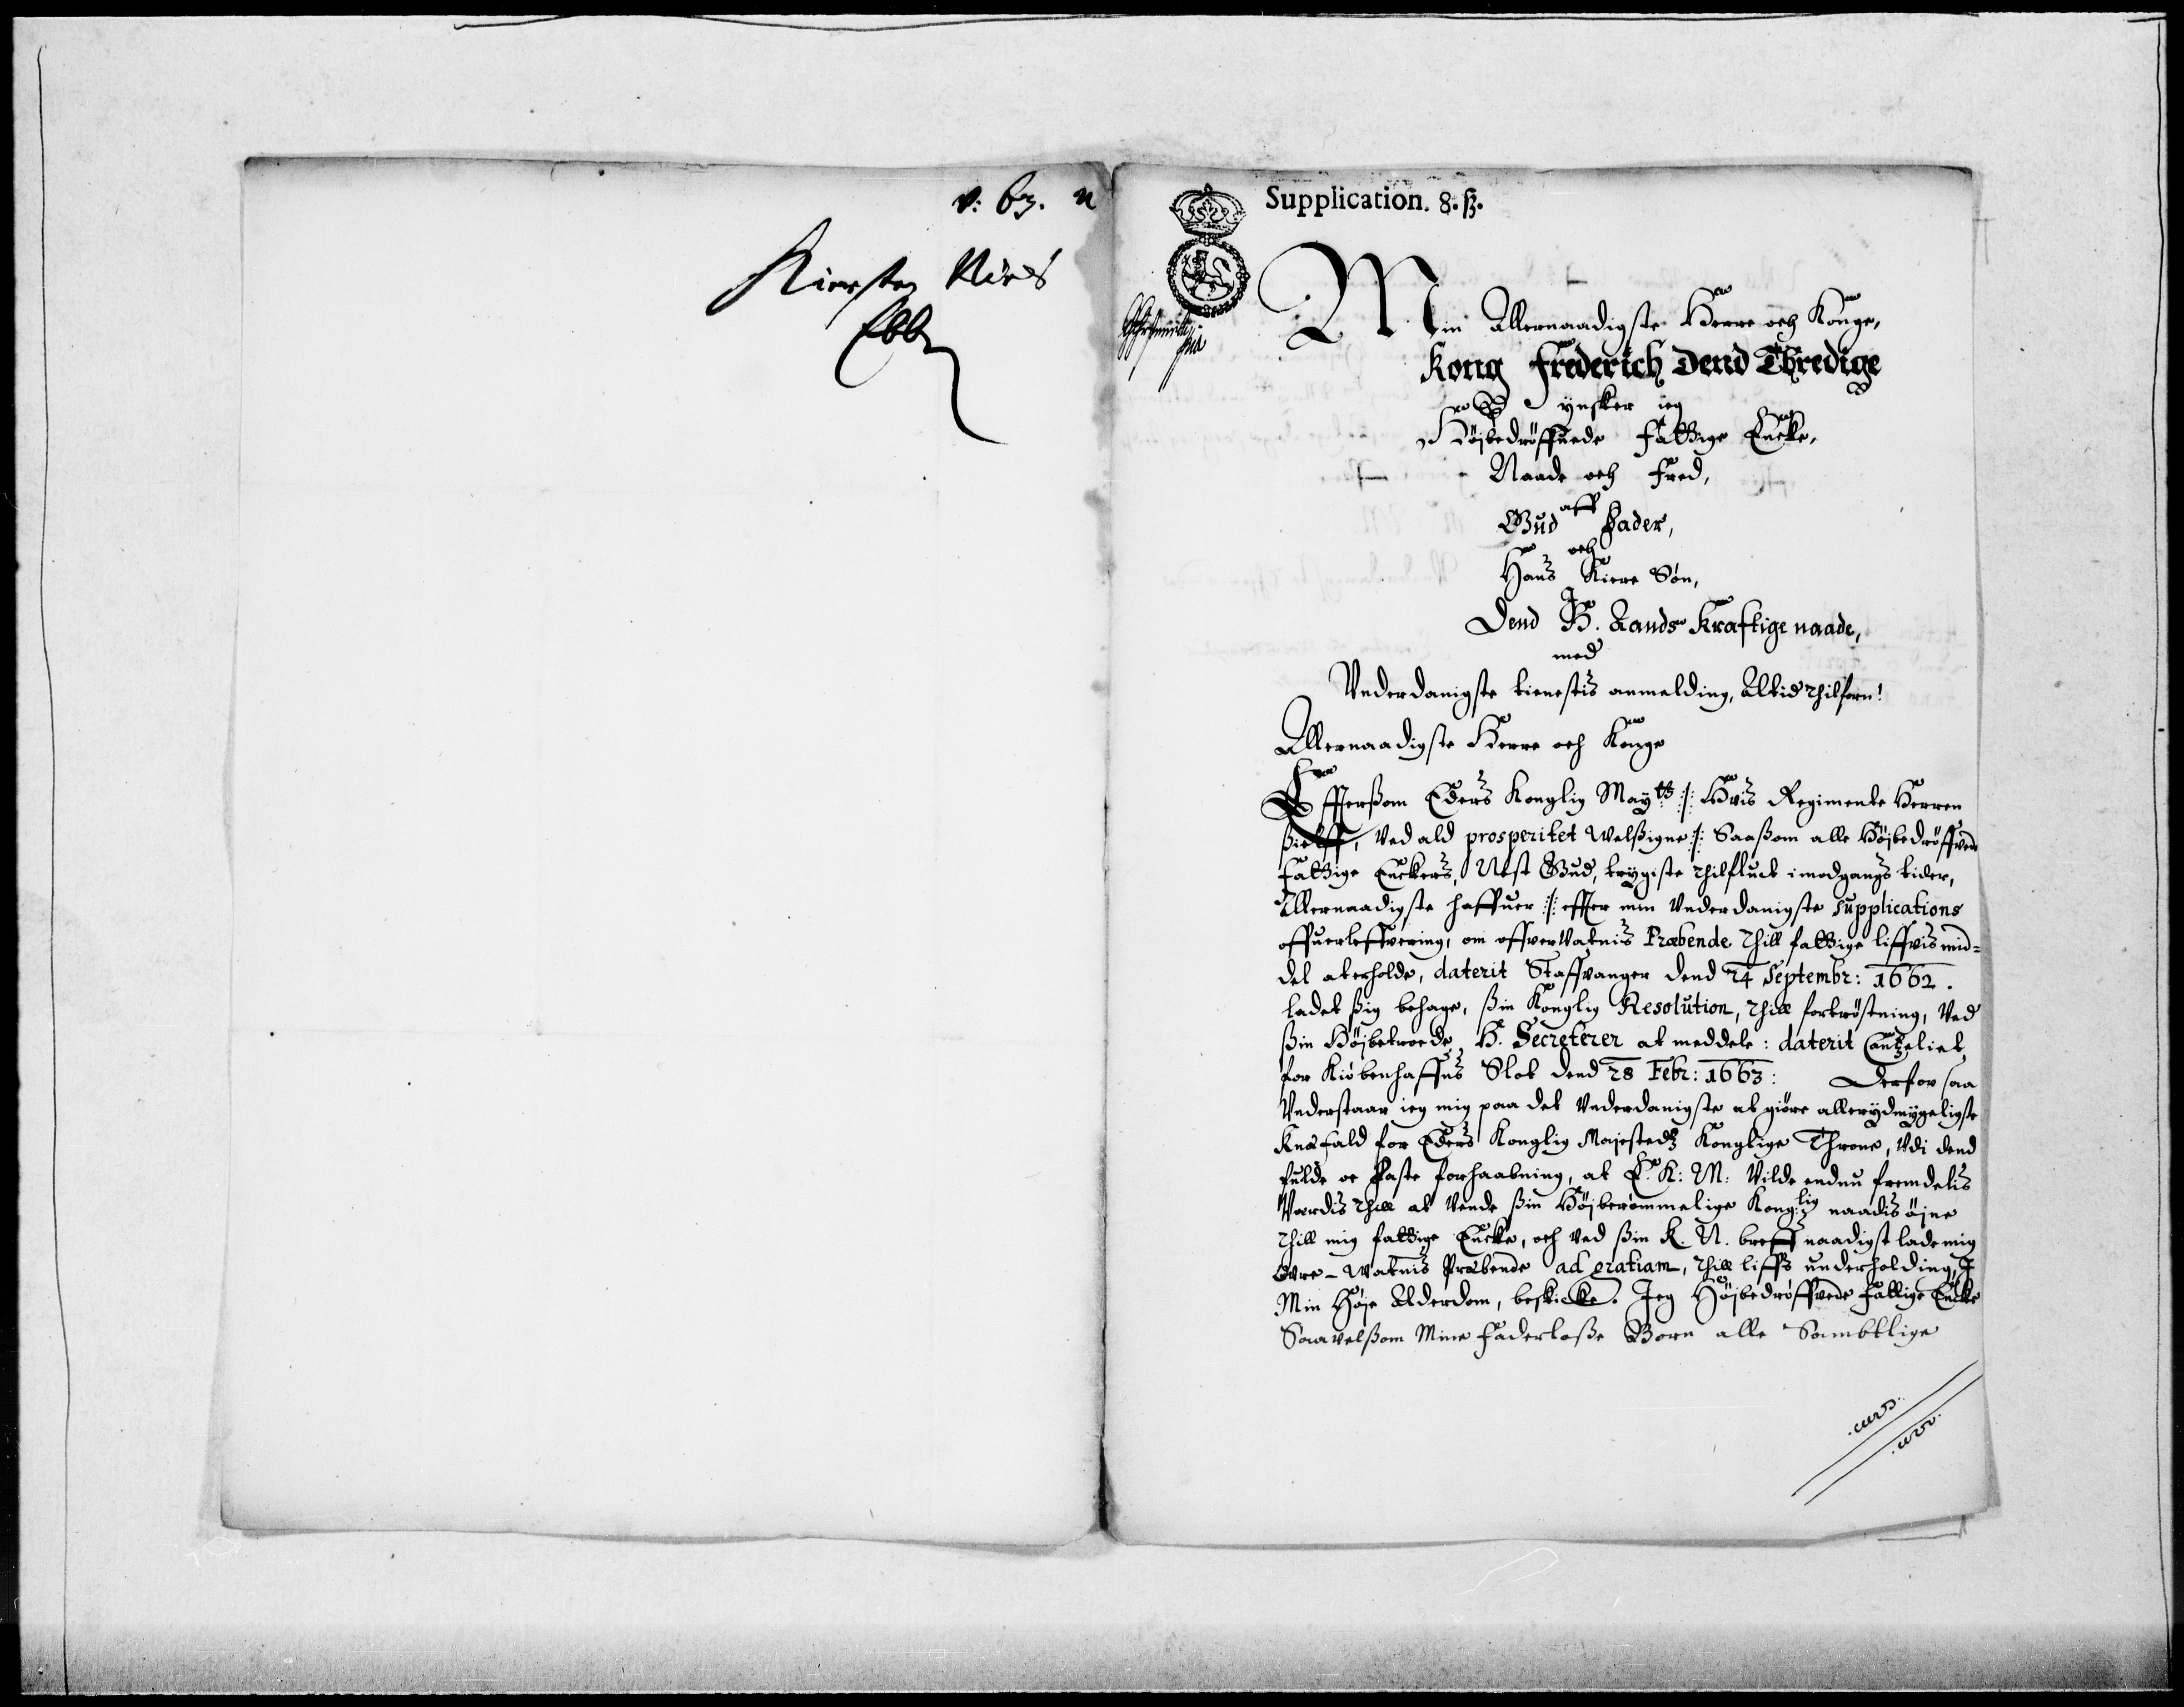 v: 63. n
Kiersten Niels
Ebb
Supplication. 8. ß.
Min Allernaadigste Herre och Konge,
Kong Frederich Dend Thredige
ynsker ieg
Højbedrøffuede Fattige Encke,
Naade och Fred,
aff
Gud Fader,
och
Hans Kiere Søn,
I
Dend H. Aands Kraftige naade,
med
Vnderdanigste tienestis anmelding, Altid thilforn!
Allernaadigste Herre och Konge
Efftersom Eders Konglig Maytt: /: Hvis Regimente Herren
sielff, Ved ald prosperitet Welßigne :/: Saaßom alle Højbedrøffvede
Fattige Enckers, Nest Gud, trygiste thilfluct i modgangs tider,
Allernaadigste haffuer :/: effter min Vnderdanigste supplications
offuerleffvering, om offver Vatnis Præbende thill fattige liffvis mid=
del at erholde, daterit Staffvanger dend 24 Septembr: 1662.
ladet ßig behage, ßin Konglig Resolution, thill fortrøstning, Ved
ßin Højbetroede H. Secreterer at meddele: daterit Cantzeliet
for Kiøbenhaffns Slot dend 28 Febr: 1663: Derfor saa
Vnderstaar ieg mig paa det Vnderdanigste at giøre allerydmygeligste
Knæfald for Eders Konglig Majestedtz Konglige Throne, Vdi dend
fulde oc Faste forhaabning, at E. K: M: Vilde endnu fremdelis
Værdis thill at Vende ßin Højberømmelige Konglig naadis øjne
thill mig fattige Encke, och Ved ßin K. N. breff naadigst lade mig
Øvre-Watnis Præbende ad gratiam, thill liffs underholding, I
Min Høje Alderdom, beskicke. Jeg Højbedrøffvede fattige Encke
Saavelßom Mine Faderløße Børn alle Sambtlige